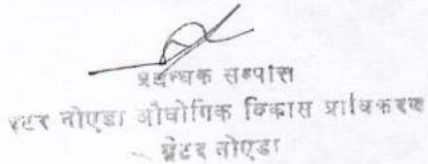 प्रबन्धक सम्पत्ति
ग्रेटर नोएडा औद्योगिक विकास प्राधिकरण
ग्रेटर नोएडा